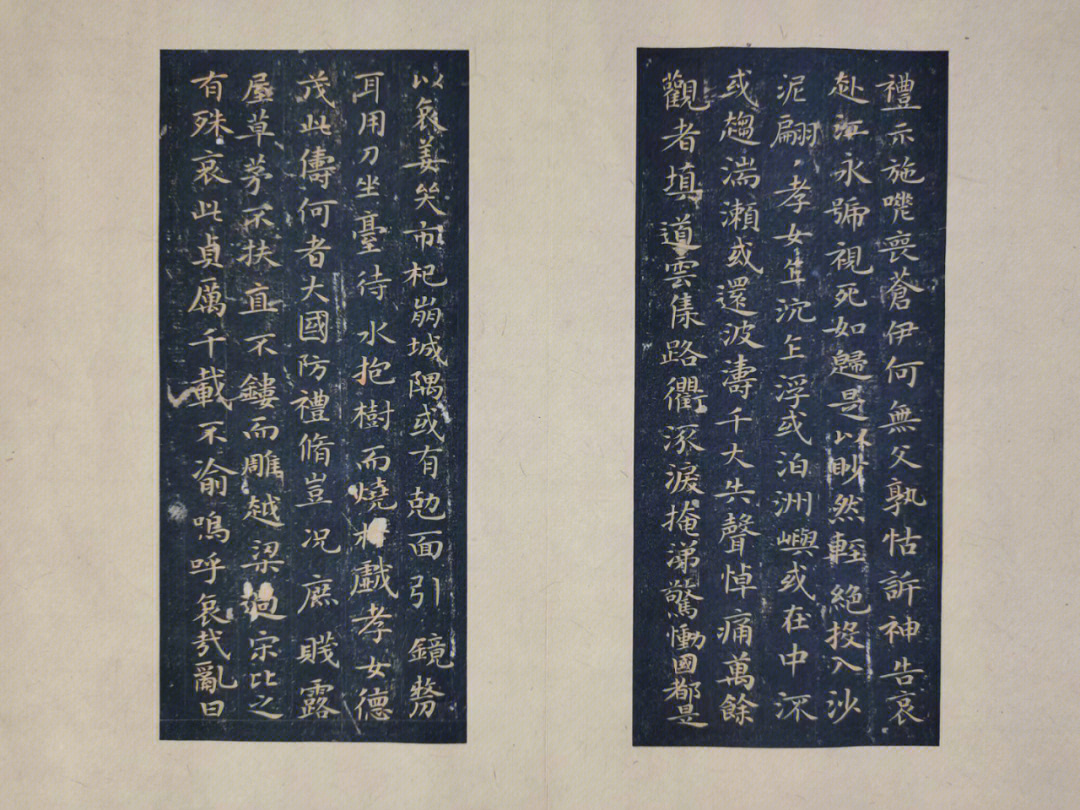 禮示施嘐喪蒼伊何無父孰怙訴神告哀
赴江永號視死如歸是以眇然輕絕投入沙
泥翩〻孝女乍沉乍浮或泊洲嶼或在中流
或趨湍瀨或還波濤千夫失聲悼痛萬餘
觀者填道雲集路衢流淚掩涕驚慟國都是
以哀姜哭市杞崩城隅或有剋面引鏡剺
耳用刀坐臺待水抱樹而燒於戲孝女德
茂此儔何者大國防禮脩豈況庶賤露
屋草茅不扶直不鏤而雕越梁過宋比之
有殊哀此貞厲千載不渝嗚呼哀哉亂曰